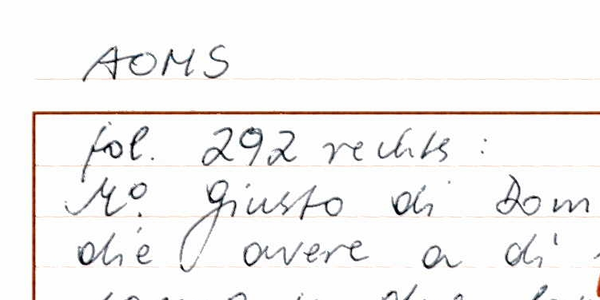 AOMS
fol. 292 rechts:
Mº Giusto di Dom
die avere a di